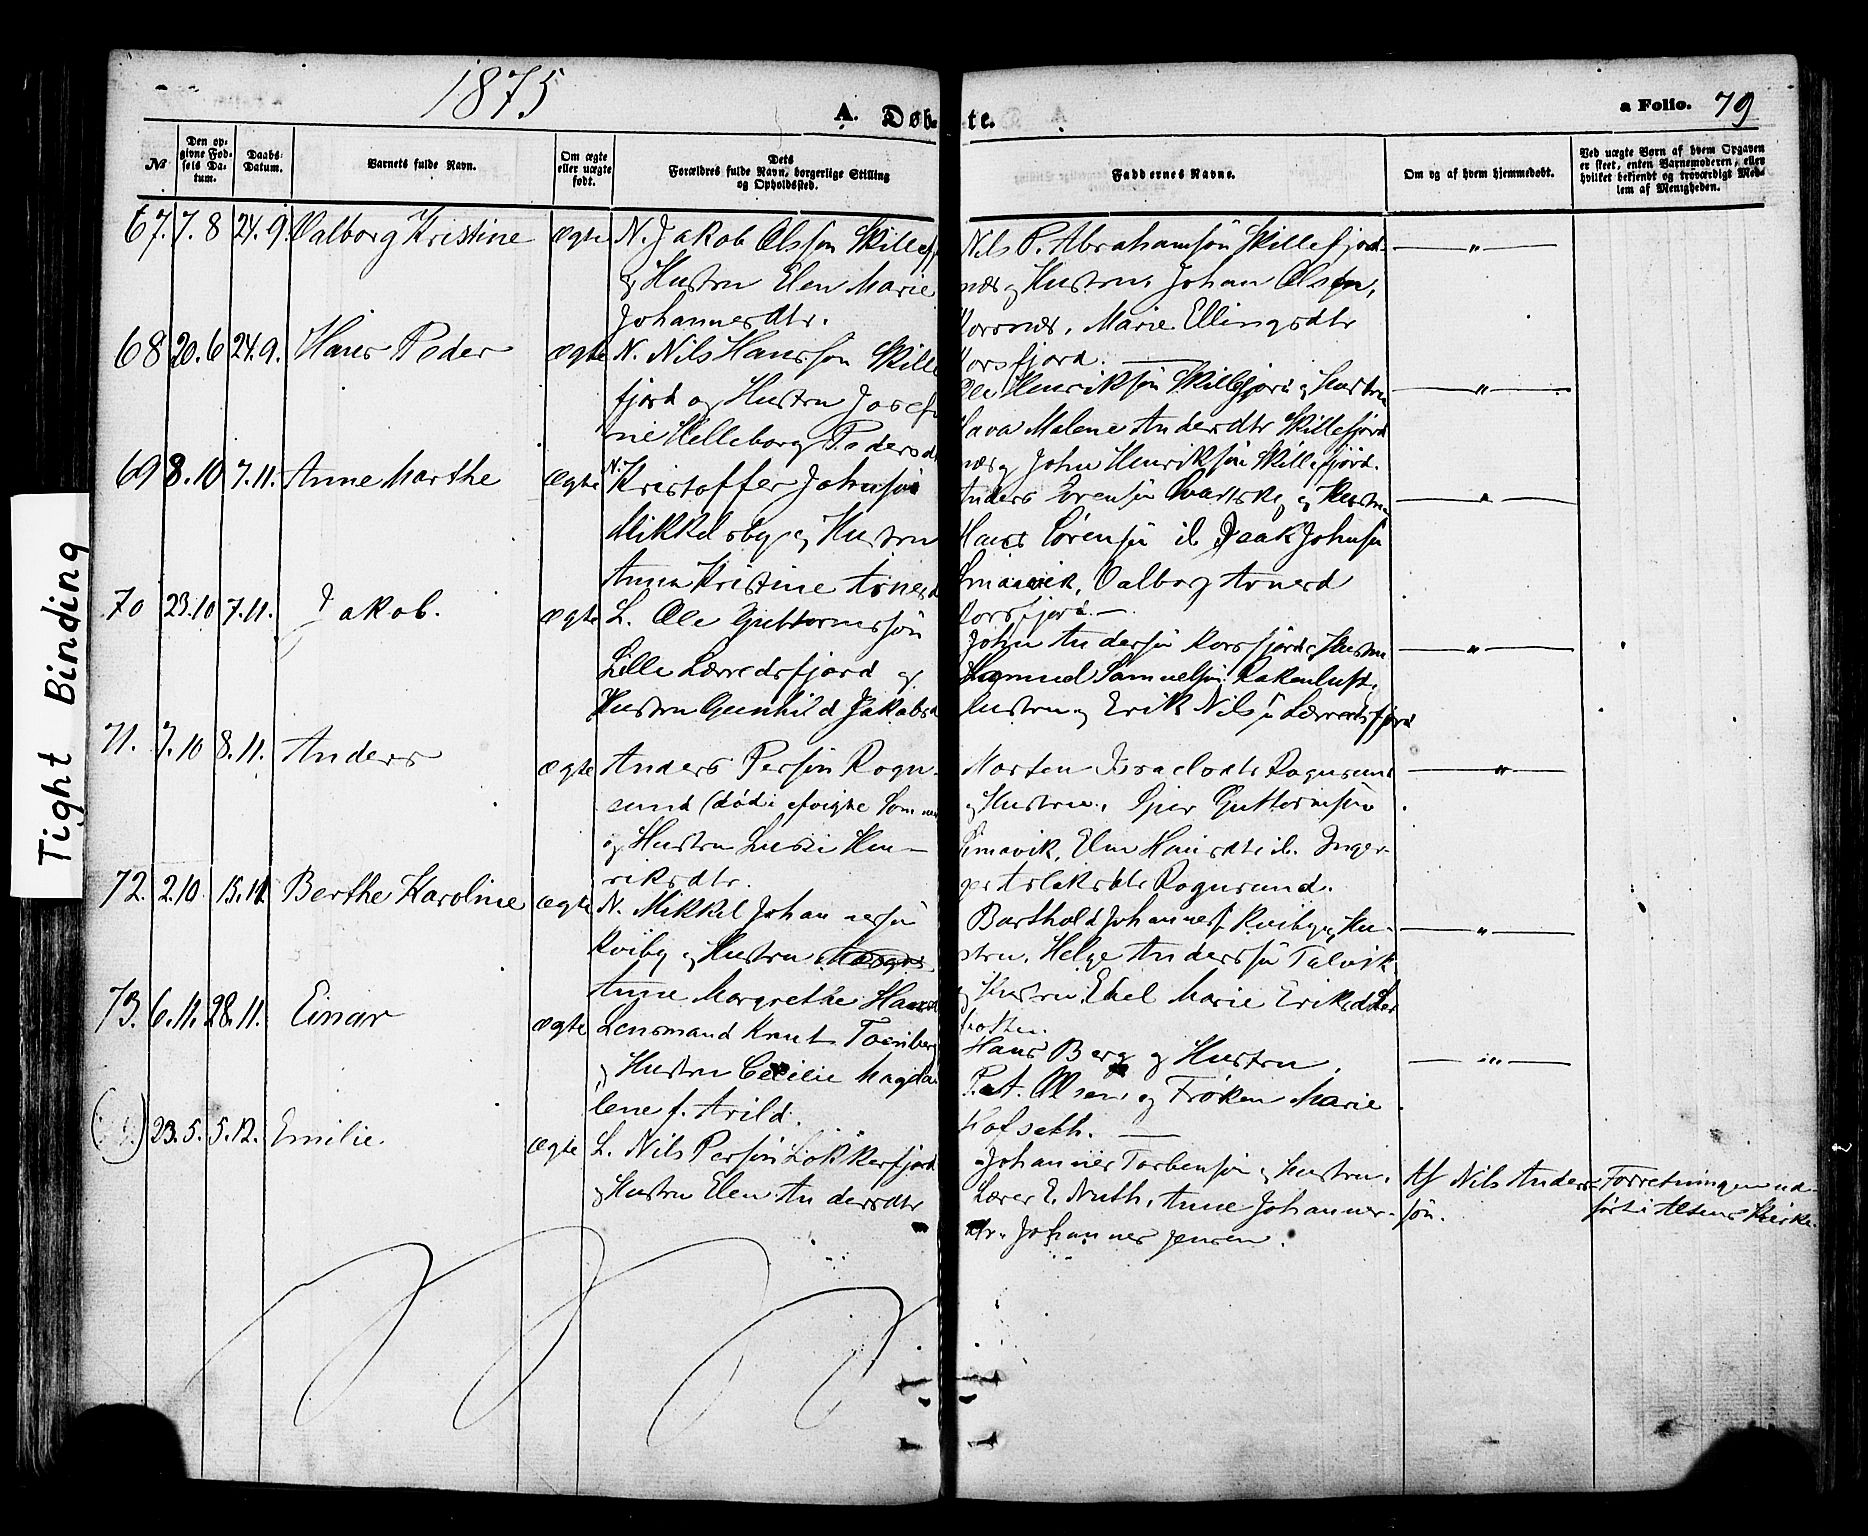 1875
A. Døb-
te.
a Folio. 79
№
Den op-
givne Fød-
sels Da-
tum.
Daabs-
Datum.
Barnets fulde Navn.
Om ægte
eller uægte
født.
Dets
Forældres fulde Navn, borgerlige Stilling
og Opholdssted.
Faddernes Navne.
Om og af hvem hjemmedøbt.
Ved uægte Børn af hvem Opgaven
er skeet, enten Barnemoderen, eller
hvilket bekjendt og troværdigt Med-
lem af Menigheden.
67. 7. 8 24. 9. Valborg Kristine ægte N. Jakob Olsson Skillef
og Hustru Elen Marie
Johannesdtr.
Nils P. Abrahamsøn Skillefjord-
næs og Hustru, Johan Olsen,
Korsnæs, Marie Ellingsdtr
Korsfjord.
68 20. 6 24. 9. Hans Peder ægte N. Nils Hansson Skille
fjord og Hustru Josefi
ne Helleborg Pedersd
Ole Henriksøn Skillefjord og Hustru
Malene Andersdtr Skillefjord
næs og John Henriksøn Skillefjord.
69 8. 10 7. 11. Anne Marthe ægte N. Kristoffer Johnsøn
Mikkelsby og Hustru
Anna Kristine
Anders og Hustru
Hans Sørensøn Isak Johnsøn
Smaavik, Valborg
Korsfjord.
70 23. 10 7. 11. Jakob. ægte L. Ole Guttormssøn
Lille Lærredsfjord og
Hustru Gunhild Jakobsd
John Andersøn Korsfjord, Hustru
Samuelsøn Rakenluft,
Hustru og Erik Nilsøn Lærredsfjord
71. 7. 10 8. 11. Anders ægte Anders Persøn Rogn-
sund (død i
og Hustru Hen-
riksdtr.
Morten Israelsdtr Rognsund
og Hustru, Guttormsøn
Simavik, Elen Hansdtr Inger-
Aslaksdtr Rognsund.
72. 2. 10 15. 11. Berthe Karoline ægte N. Mikkel Johannesøn
Kviby og Hustru
Anne Margrethe Hansd
Barthold Johannes. Kviby og Hu-
stru, Helge Anderssøn Talvik
og Hustru, Marie Eriksdtr
73. 6. 11. 28. 11. Einar ægte Lensmand Knut
og Hustru Cecilie Magda
lene f. Arild.
Hans Berg og Hustru,
P. A. Olsen og Frøken Marie
Hofseth.
23. 5. 5. 12. Emilie. ægte L. Nils Persøn Lokkerfjord
og Hustru Elen Andersdtr
Johannes Torbensøn og Hustru,
Lærer E. Nuth, Anne Johannes-
dtr. Johannes Jensen.
Af Nils Anders-
søn.
Forretningen ud-
ført i Altens Kirke.
Tight Binding